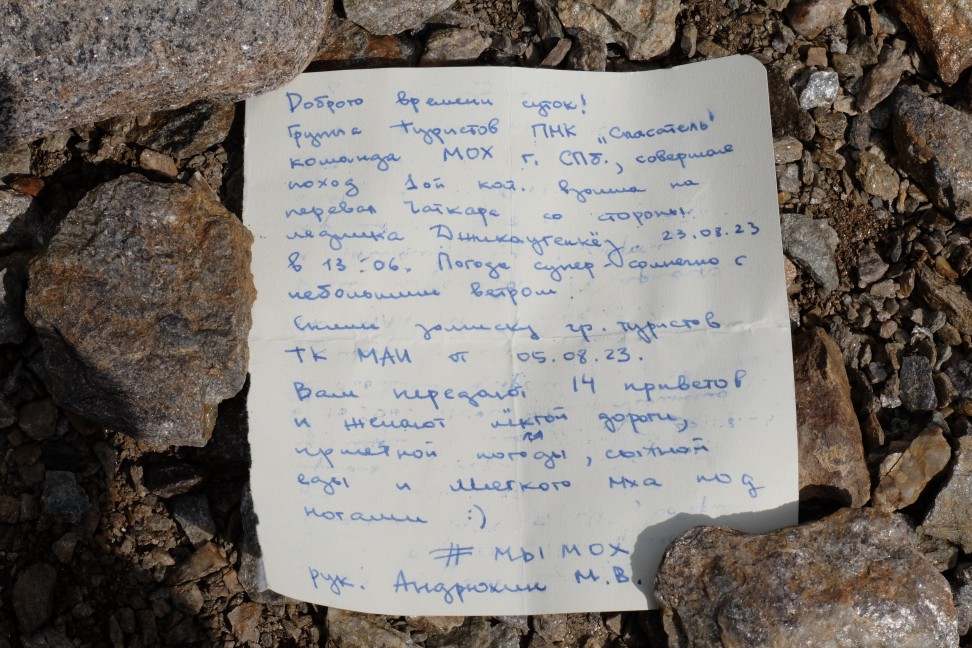 Доброго времени суток!
Группа туристов ПНК "Спасатель"
команда МОХ г. СПб., совершая
поход 1ой кат. взошла на
перевал Чаткара со стороны
ледника Джикаугенкёз, 23.08.23
в 13.06. Погода супер-солнечно с
небольшим ветром
Сняли записку гр. туристов
ТК МАИ от 05.08.23.
Вам передают 14 приветов
и желают лёгкой дороги,
приятной погоды, сытной
еды и мягкого мха под
ногами :)
# МЫ МОХ
рук: Андрюхин М.В.